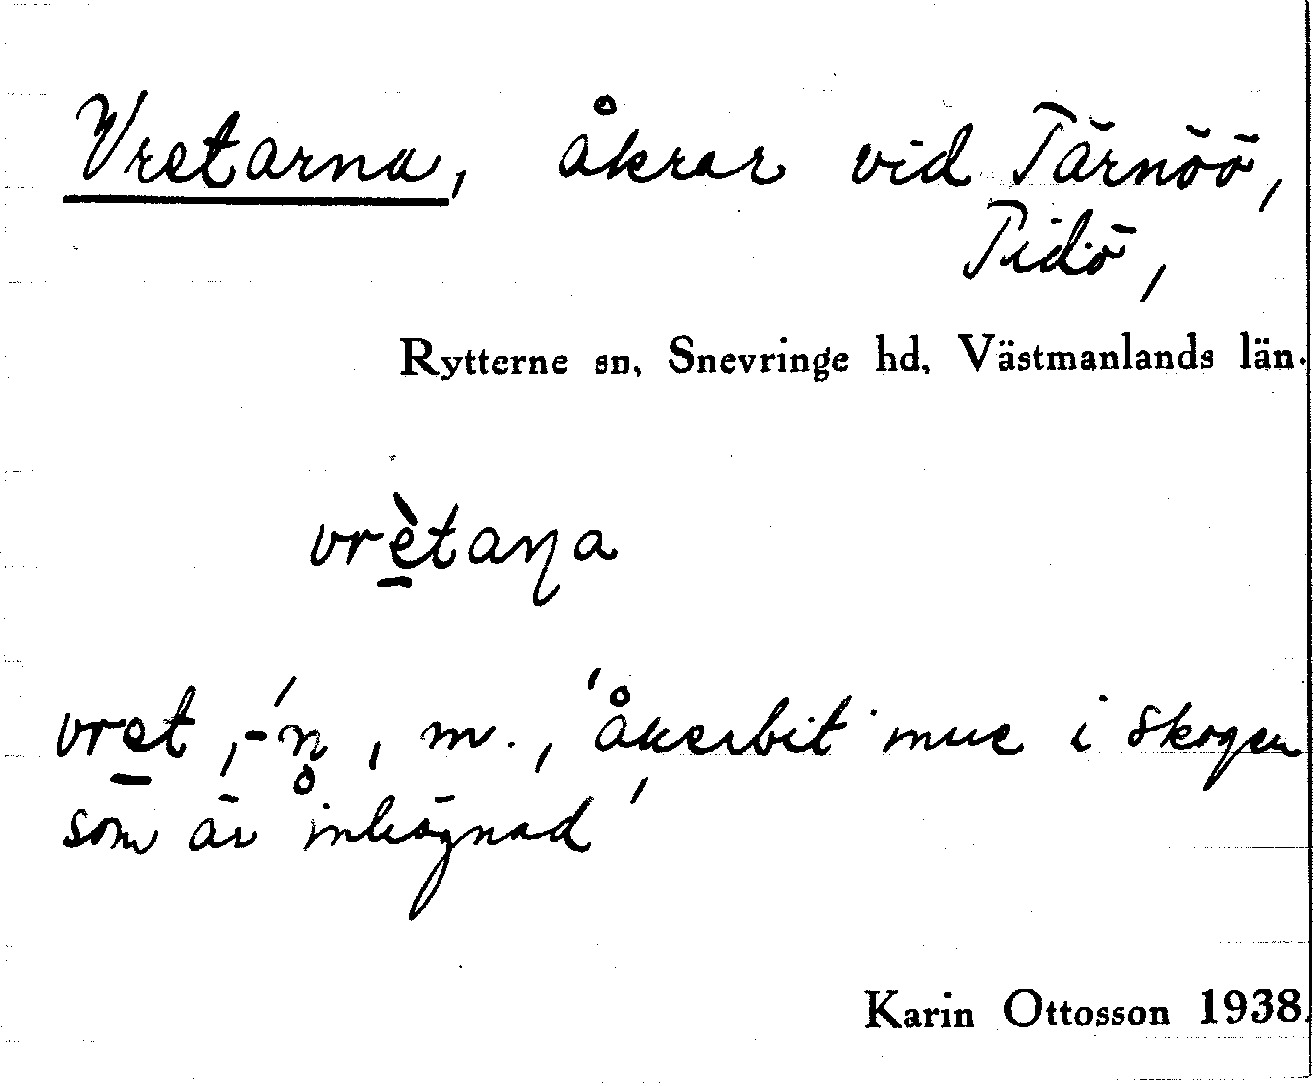 Vretarna, åkrar vid Tärnöö,
Tidö,
Rytterne sn, Snevringe hd, Västmanlands län.
vrè̱taṇa
vre̱t, -´n̥, m., 'åkerbit inne i skogen
som är inhägnad'
Karin Ottosson 1938.